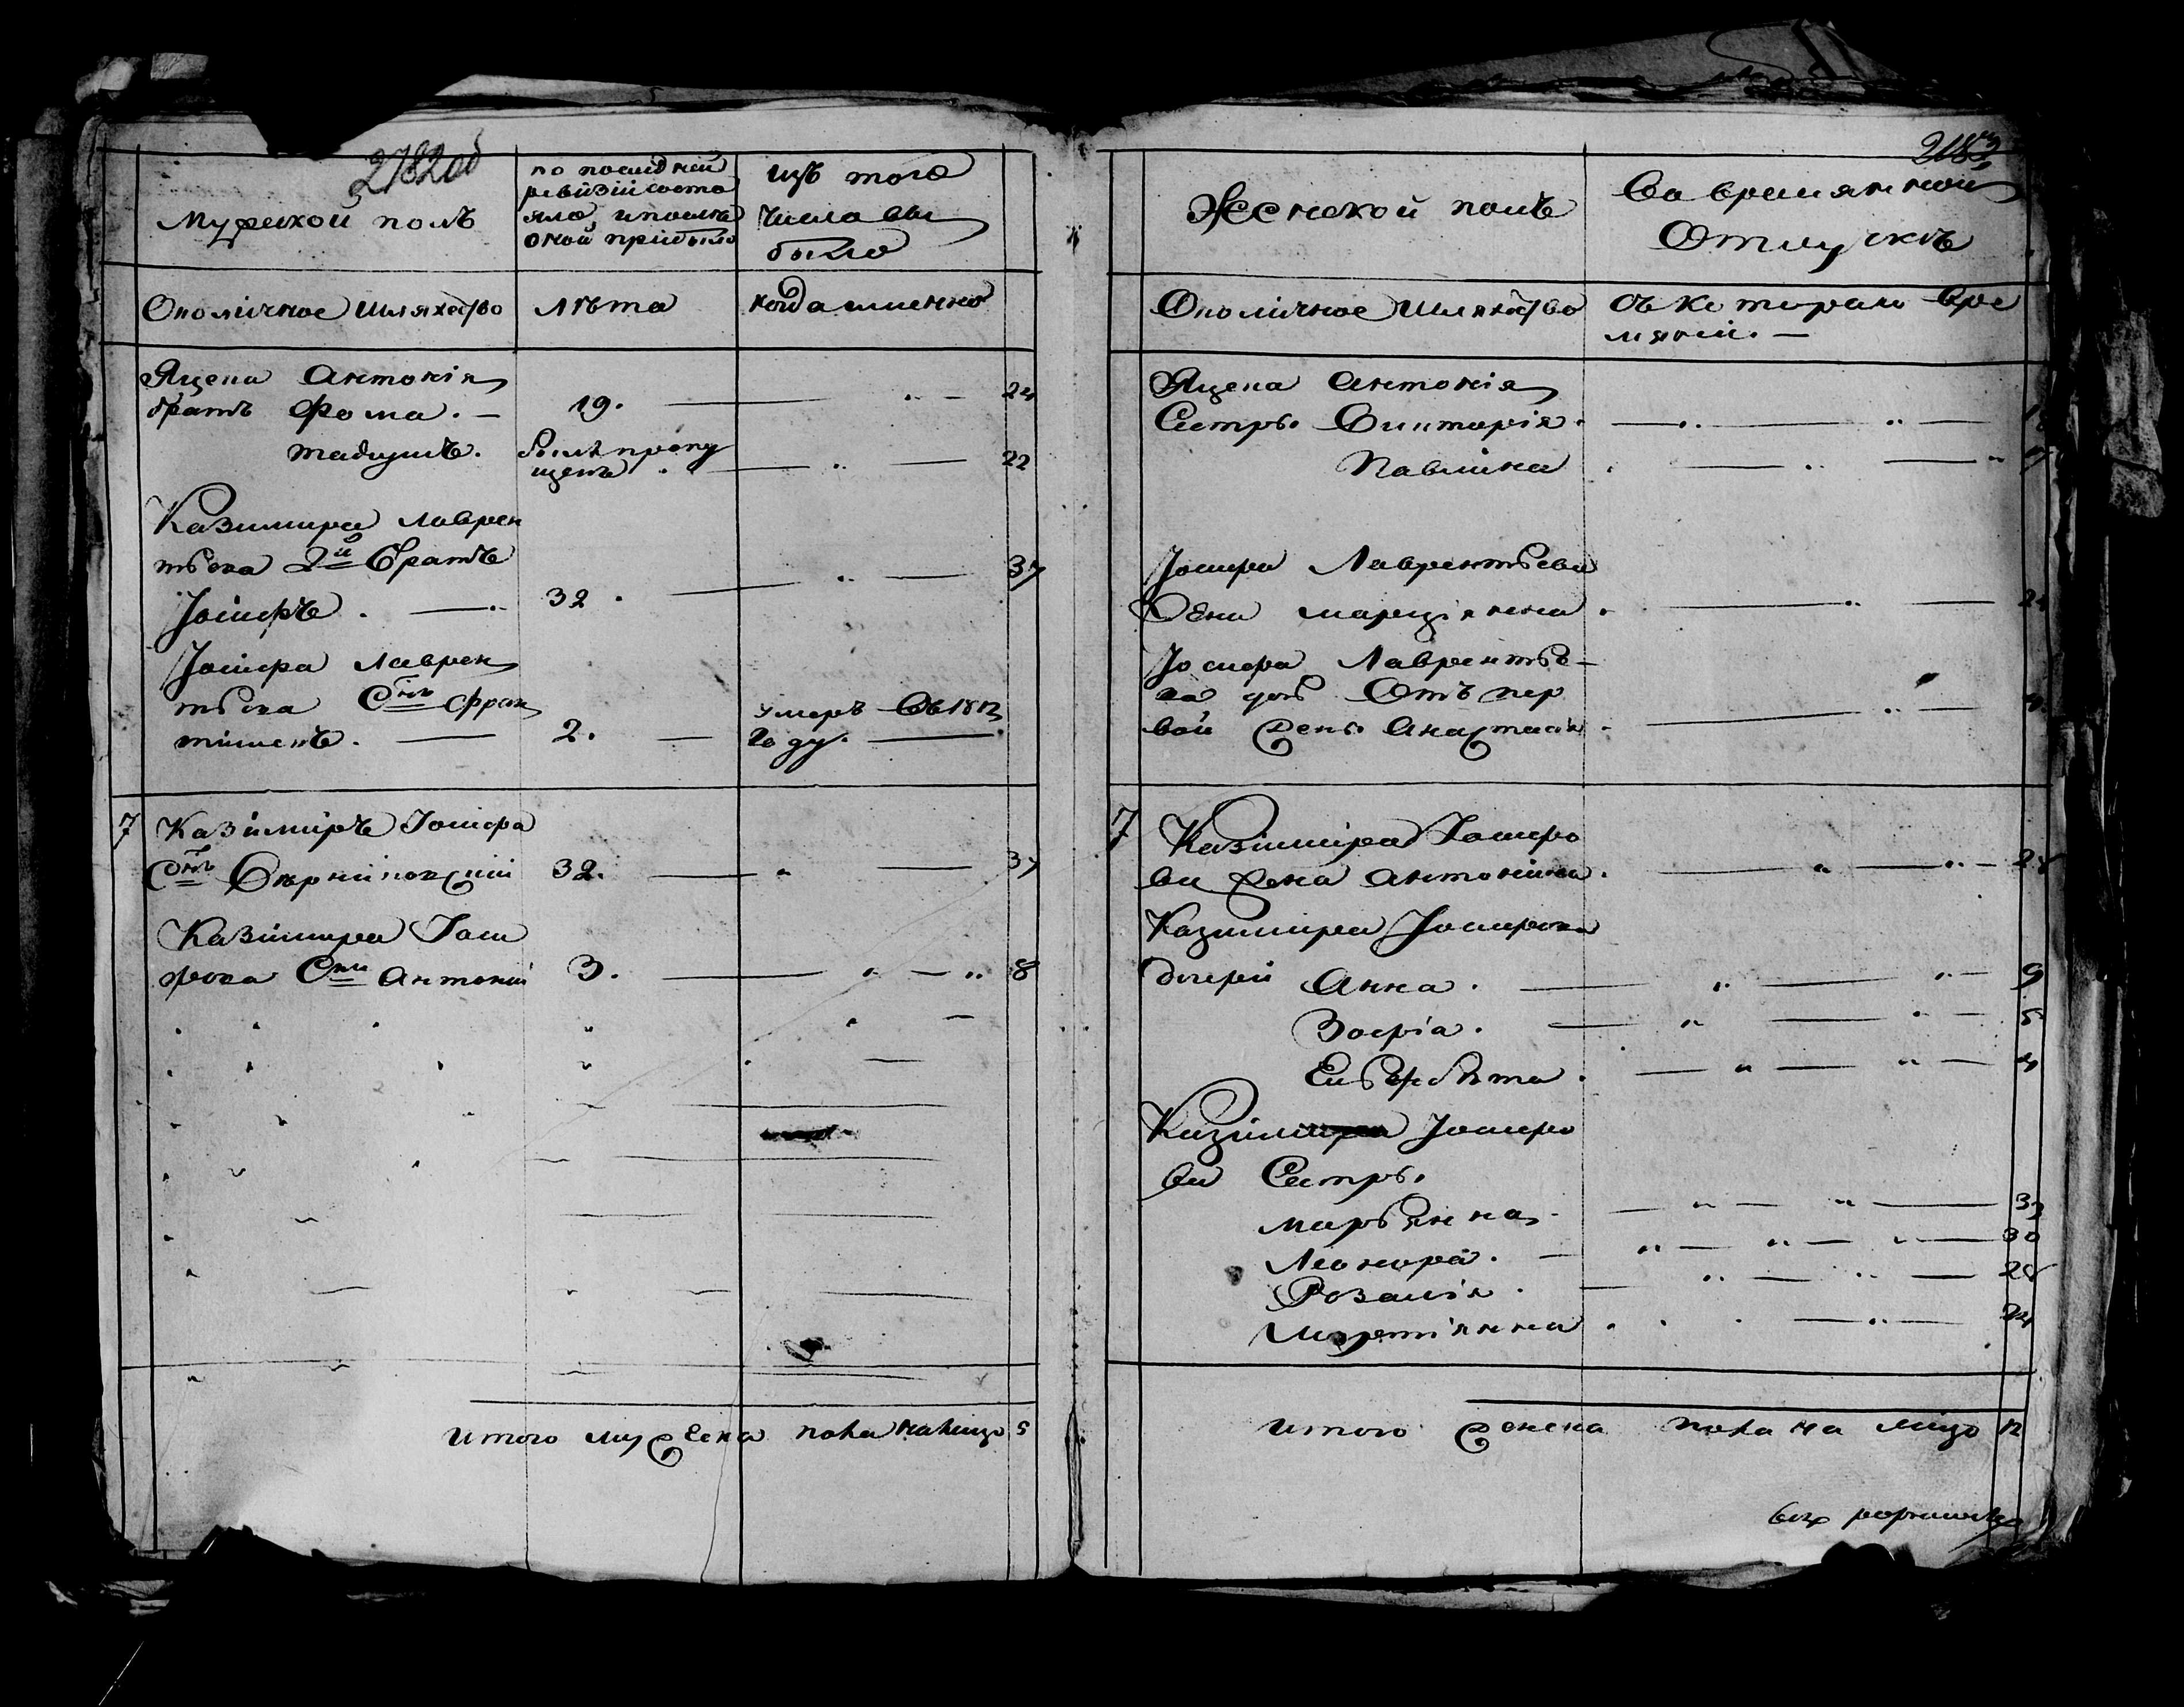 2782об
Мужеской полъ
по последней
ревизіи состо
яло, и после
оной прибыло
изъ того
числа вы
было
Околичное Шляхество
лѣта
когда имянно
Яцена Антонія
братъ Фома. —
19.
24
тадеушъ.
былъ пропу
щенъ.
22
Казимира Лаврен
тьева 2й братъ
Іосифъ.
32.
37
Іосифа Лаврен
тьева Снъ Фран
тишекъ.
2.
умеръ въ 1812
году.
7
Казимиръ Іосифа
Снъ
32.
37
Казимира Іоси
фова Снъ Антоній
3.
8
итого мужеска пола на лицо 5
2183
Женской полъ
Во времянной
Отлуске
Околичное Шляхество
съ котораго вре
мяни. —
Яцена Антонія
Сестры Виктория.
Павлина
Іосифа Лаврентьева
жена Марцianна.
Іосифа Лавренть
ва дочь Отъ пер
вой жены Анастасія
7
Казимира Іосифо
ва жена Антонина.
28
Казимира Іосифова
дочери Анна.
9
Зофія.
5
Елъжбѣта.
4
Казимира Іосифо
ва Сестры
Марьянна
33
Леонора.
30
Розалія.
28
Мартіянна.
24
итого женска пола на лицо 12